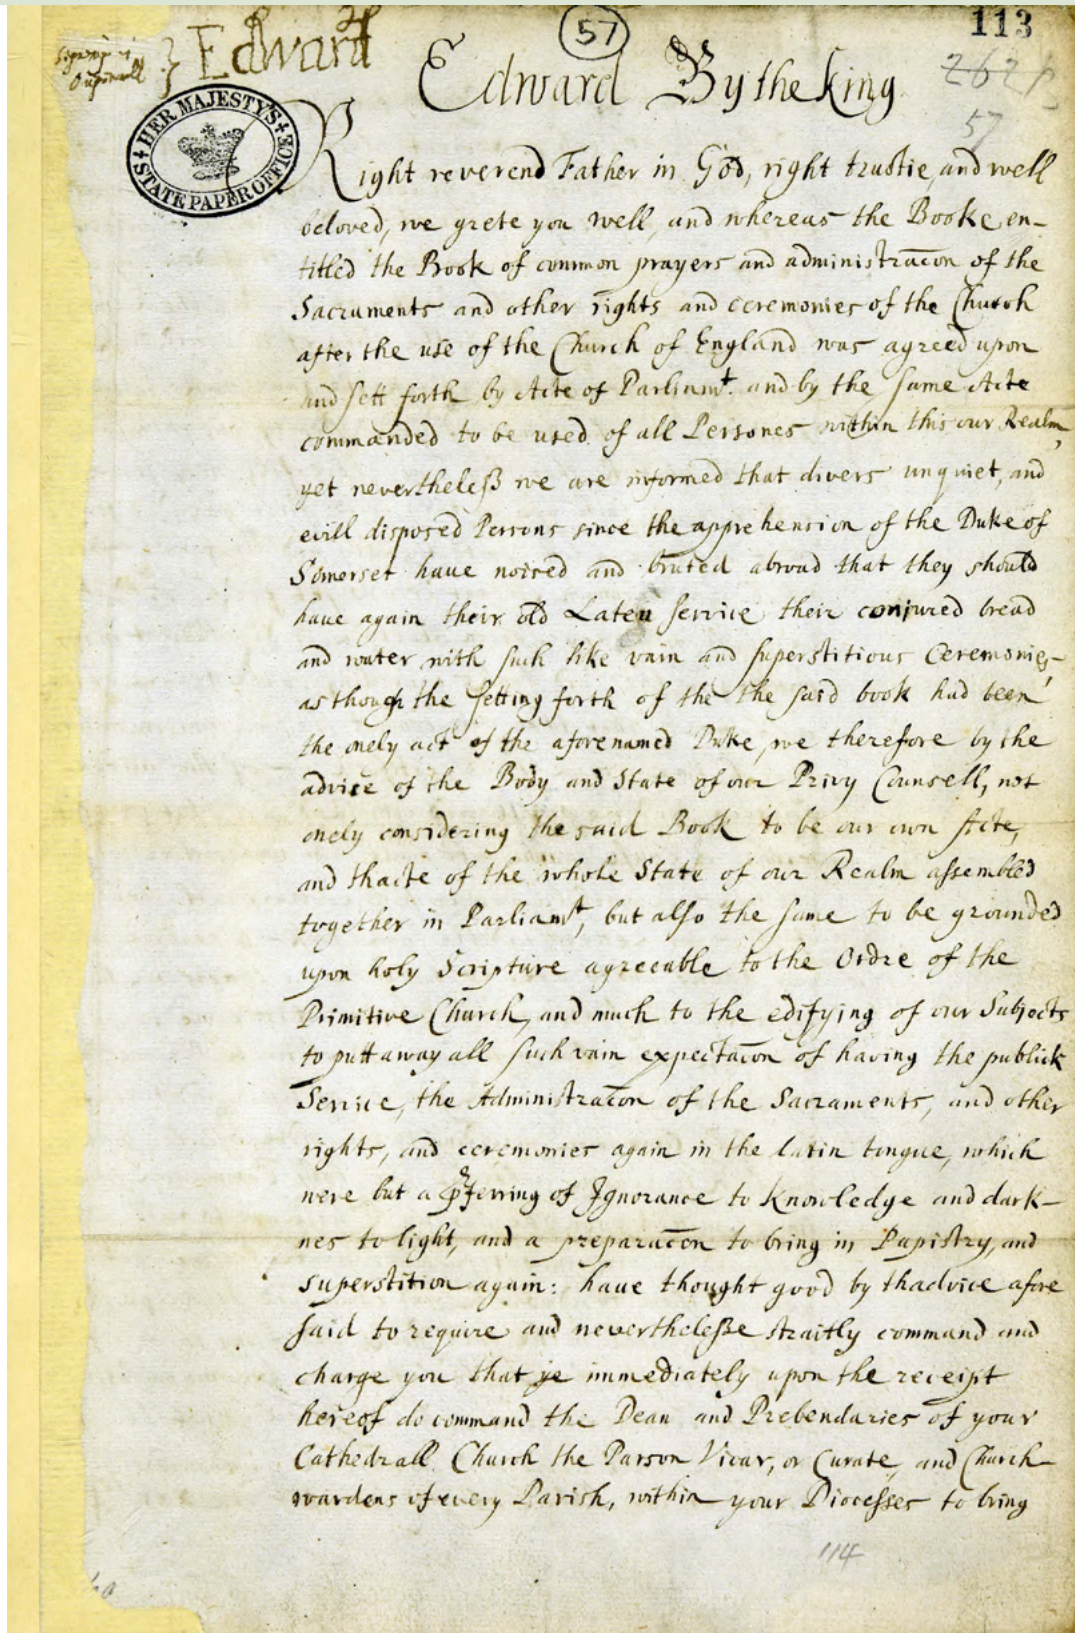 Edward
57
113
262
57
Edward By the king
HER MAJESTY'S
STATE PAPER OFFICE
Right reverend Father in God, right trustie, and well
beloved, we grete you well, and whereas the Booke en-
titled the Book of common prayers and administracōn of the
Sacraments and other rights and ceremonies of the Church
after the use of the Church of England was agreed upon
and sett forth by Acte of Parliamt. and by the same Acte
commanded to be used of all Persones within this our Realm,
yet neverthelesß we are informed that divers unquiet, and
evill disposed Persons since the apprehension of the Duke of
Somerset have noised and bruted abroad that they should
have again their old Laten service their conjured bread
and water with such like vain and superstitious Ceremonies
as though the setting forth of the the said book had been
the onely act of the aforenamed Duke, we therefore by the
advice of the Body and State of our Privy Counsell, not
onely considering the said Book to be our own Acte,
and thacte of the whole State of our Realm assembled
together in Parliamt, but also the same to be grounded
upon holy Scripture agreeable to the Ordre of the
Primitive Church, and much to the edifying of our Subjects
to putt away all such vain expectacōn of having the publick
Service, the Administracōn of the Sacraments, and other
rights, and ceremonies again in the latin tongue, which
were but a pferring of Ignorance to knowledge and dark-
nes to light, and a preparacōn to bring in Papistry, and
superstition again: have thought good by thadvice afore
said to require and neverthelesße straitly command and
charge you that ye immediately upon the receipt
hereof do command the Dean and Prebendaries of your
Cathedrall Church the Parson Vicar, or Curate, and Church
wardens of every Parish, within your Diocesses to bring
114